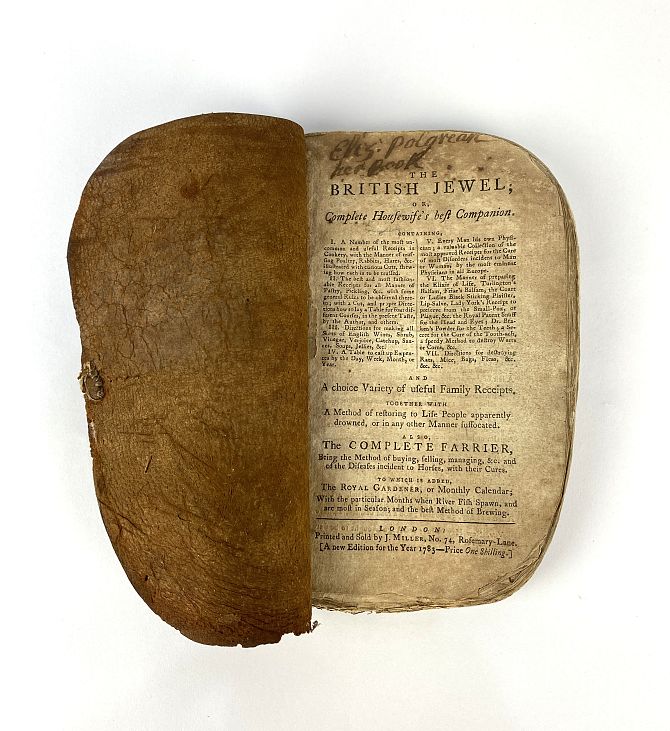 Eliz: Polgrean
her Book
THE
BRITISH JEWEL;
OR,
Complete Housewife's best Companion.
CONTAINING,
I. A Number of the most un-
common and useful Receipts in
Cookery, with the Manner of trus-
sing Poultry, Rabbits, Hares, &c.
illustrated with curious Cuts, shew-
ing how each is to be trussed.
II. The best and most fashion-
able Receipts for all Manner of
Pastry, Pickling, &c. with some
general Rules to be observed there-
in; with a Cut, and proper Direc-
tions how to lay a Table for four dif-
ferent Courses, in the present Taste,
by the Author, and others.
III. Directions for making all
Sorts of English Wines, Shrub,
Vinegar, Verjuice, Catchup, Sau-
ces, Soups, Jellies, &c.
IV. A Table to cast up Expen-
ces by the Day, Week, Month, or
Year.
V. Every Man his own Physi-
cian; a valuable Collection of the
most approved Receipts for the Cure
of most Disorders incident to Man
or Woman, by the most eminent
Physicians in all Europe.
VI. The Manner of preparing
the Elixir of Life, Turlington's
Balsam, Friar's Balsam, the Court
or Ladies Black Sticking Plaister,
Lip-Salve, Lady York's Receipt to
preserve from the Small-Pox, or
Plague, &c. the Royal Patent Snuff
for the Head and Eyes; Dr. Bra-
ken's Powder for the Teeth; a Se-
cret for the Cure of the Tooth-ach,
a speedy Method to destroy Warts
or Corns, &c.
VII. Directions for destroying
Rats, Mice, Bugs, Fleas, &c.
&c. &c.
AND
A choice Variety of useful Family Receipts.
TOGETHER WITH
A Method of restoring to Life People apparently
drowned, or in any other Manner suffocated.
ALSO,
The COMPLETE FARRIER,
Being the Method of buying, selling, managing, &c. and
of the Diseases incident to Horses, with their Cures.
TO WHICH IS ADDED,
The ROYAL GARDENER, or Monthly Calendar;
With the particular Months when River Fish Spawn, and
are most in Season; and the best Method of Brewing.
LONDON:
Printed and Sold by J. MILLER, No. 74, Rosemary-Lane.
[A new Edition for the Year 1785—Price One Shilling.]